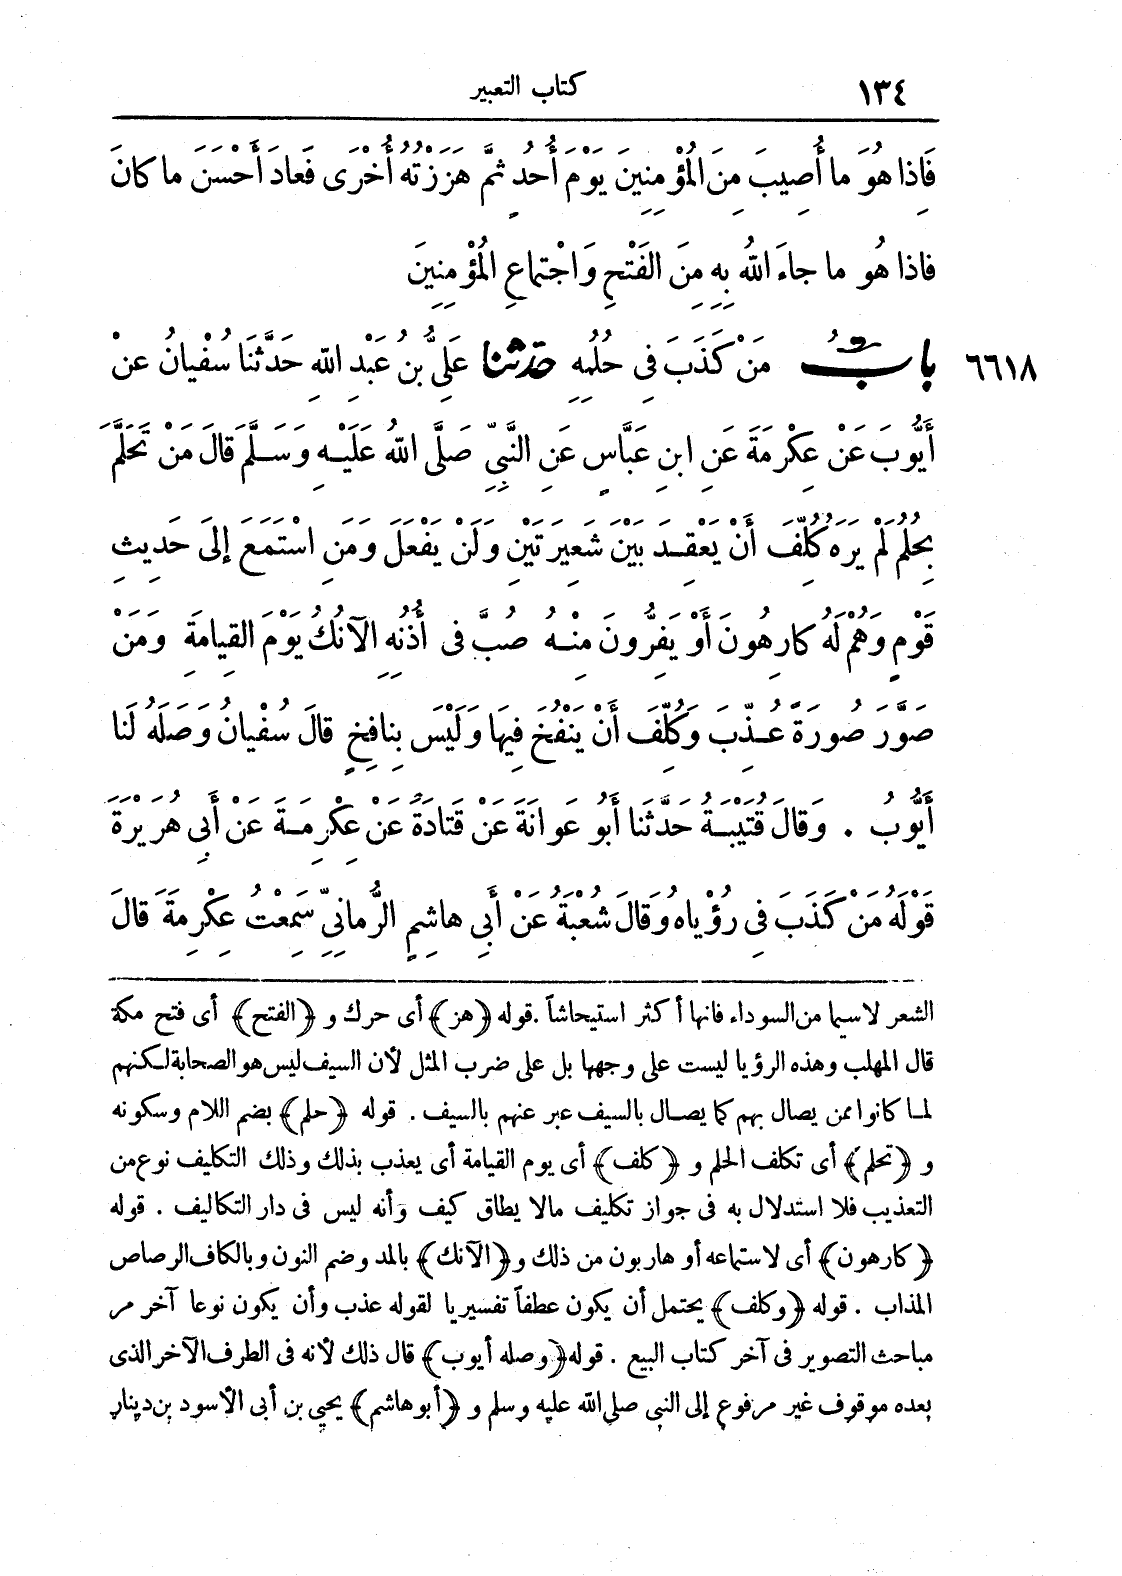 ١٣٤ كتاب التعبير
فَاِذا هُوَ ما أُصِيبَ مِنَ المُؤْمِنِينَ يَوْمَ أُحُدٍ ثُمَّ هَزَزْتُهُ أُخْرَى فَعَادَ أَحْسَنَ ما كانَ
فاذا هُوَ ما جاءَ اللهُ بِهِ مِنَ الفَتْحِ وَاجْتِماعِ المُؤْمِنِينَ
٦٦١٨ بابُ مَنْ كَذَبَ فِي حُلُمِهِ حدثنا عَلِيُّ بنُ عَبْدِ اللهِ حَدَّثَنَا سُفْيانُ عنْ
أَيُّوبَ عَنْ عِكْرِمَةَ عَنِ ابنِ عَبَّاسٍ عَنِ النَّبِيِّ صَلَّى اللهُ عَلَيْهِ وَسَلَّمَ قالَ مَنْ تَحَلَّمَ
بِحُلُمٍ لَمْ يَرَهُ كُلِّفَ أَنْ يَعْقِدَ بَيْنَ شَعِيرَتَيْنِ وَلَنْ يَفْعَلَ وَمَنِ اسْتَمَعَ إلَى حَدِيثِ
قَوْمٍ وَهُمْ لَهُ كارِهُونَ أَوْ يَفِرُّونَ مِنْهُ صُبَّ فى أُذُنِهِ الآنُكُ يَوْمَ القِيامَةِ وَمَنْ
صَوَّرَ صُورَةً عُذِّبَ وَكُلِّفَ أَنْ يَنْفُخَ فِيهَا وَلَيْسَ بِنافِخٍ قالَ سُفْيانُ وَصَلَهُ لَنا
أَيُّوبُ . وَقالَ قُتَيْبَةُ حَدَّثَنَا أَبُو عَوانَةَ عَنْ قَتَادَةَ عَنْ عِكْرِمَةَ عَنْ أَبِي هُرَيْرَةَ
قَوْلَهُ مَنْ كَذَبَ فِي رُؤْياهُ وَقالَ شُعْبَةُ عَنْ أَبِي هاشِمٍ الرُّمانِيِّ سَمِعْتُ عِكْرِمَةَ قالَ
الشعر لاسيما من السوداء فانها أكثر استيحاشاً . قوله ﴿هز﴾ أى حرك و ﴿الفتح﴾ أى فتح مكة
قال المهلب وهذه الرؤيا ليست على وجهها بل على ضرب المثل لأن السيف ليس هو الصحابة لكنهم
لما كانوا ممن يصال بهم كما يصال بالسيف عبر عنهم بالسيف . قوله ﴿حلم﴾ بضم اللام وسكونه
و ﴿تحلم﴾ أى تكلف الحلم و ﴿كلف﴾ أى يوم القيامة أى يعذب بذلك وذلك التكليف نوع من
التعذيب فلا استدلال به فى جواز تكليف مالا يطاق كيف وأنه ليس فى دار التكاليف . قوله
﴿كارهون﴾ أى لاستماعه أو هاربون من ذلك و ﴿الآنك﴾ بالمد وضم النون وبالكاف الرصاص
المذاب . قوله ﴿وكلف﴾ يحتمل أن يكون عطفاً تفسيريا لقوله عذب وأن يكون نوعا آخر مر
مباحث التصوير فى آخر كتاب البيع . قوله ﴿وصله أيوب﴾ قال ذلك لأنه فى الطرف الآخر الذى
بعده موقوف غير مرفوع إلى النبى صلى الله عليه وسلم و ﴿أبو هاشم﴾ يحيى بن أبى الأسود بن دينار